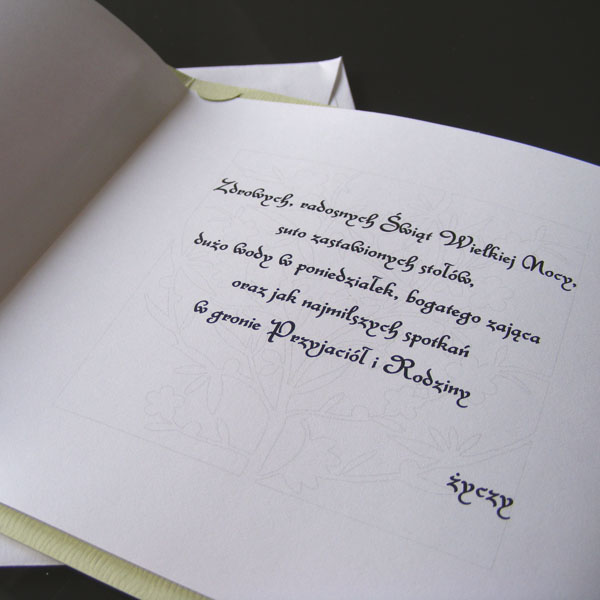 Zdrowych, radosnych Świąt Wielkiej Nocy,
suto zastawionych stołów,
dużo wody w poniedziałek, bogatego zająca
oraz jak najmilszych spotkań
w gronie Przyjaciół i Rodziny
życzy